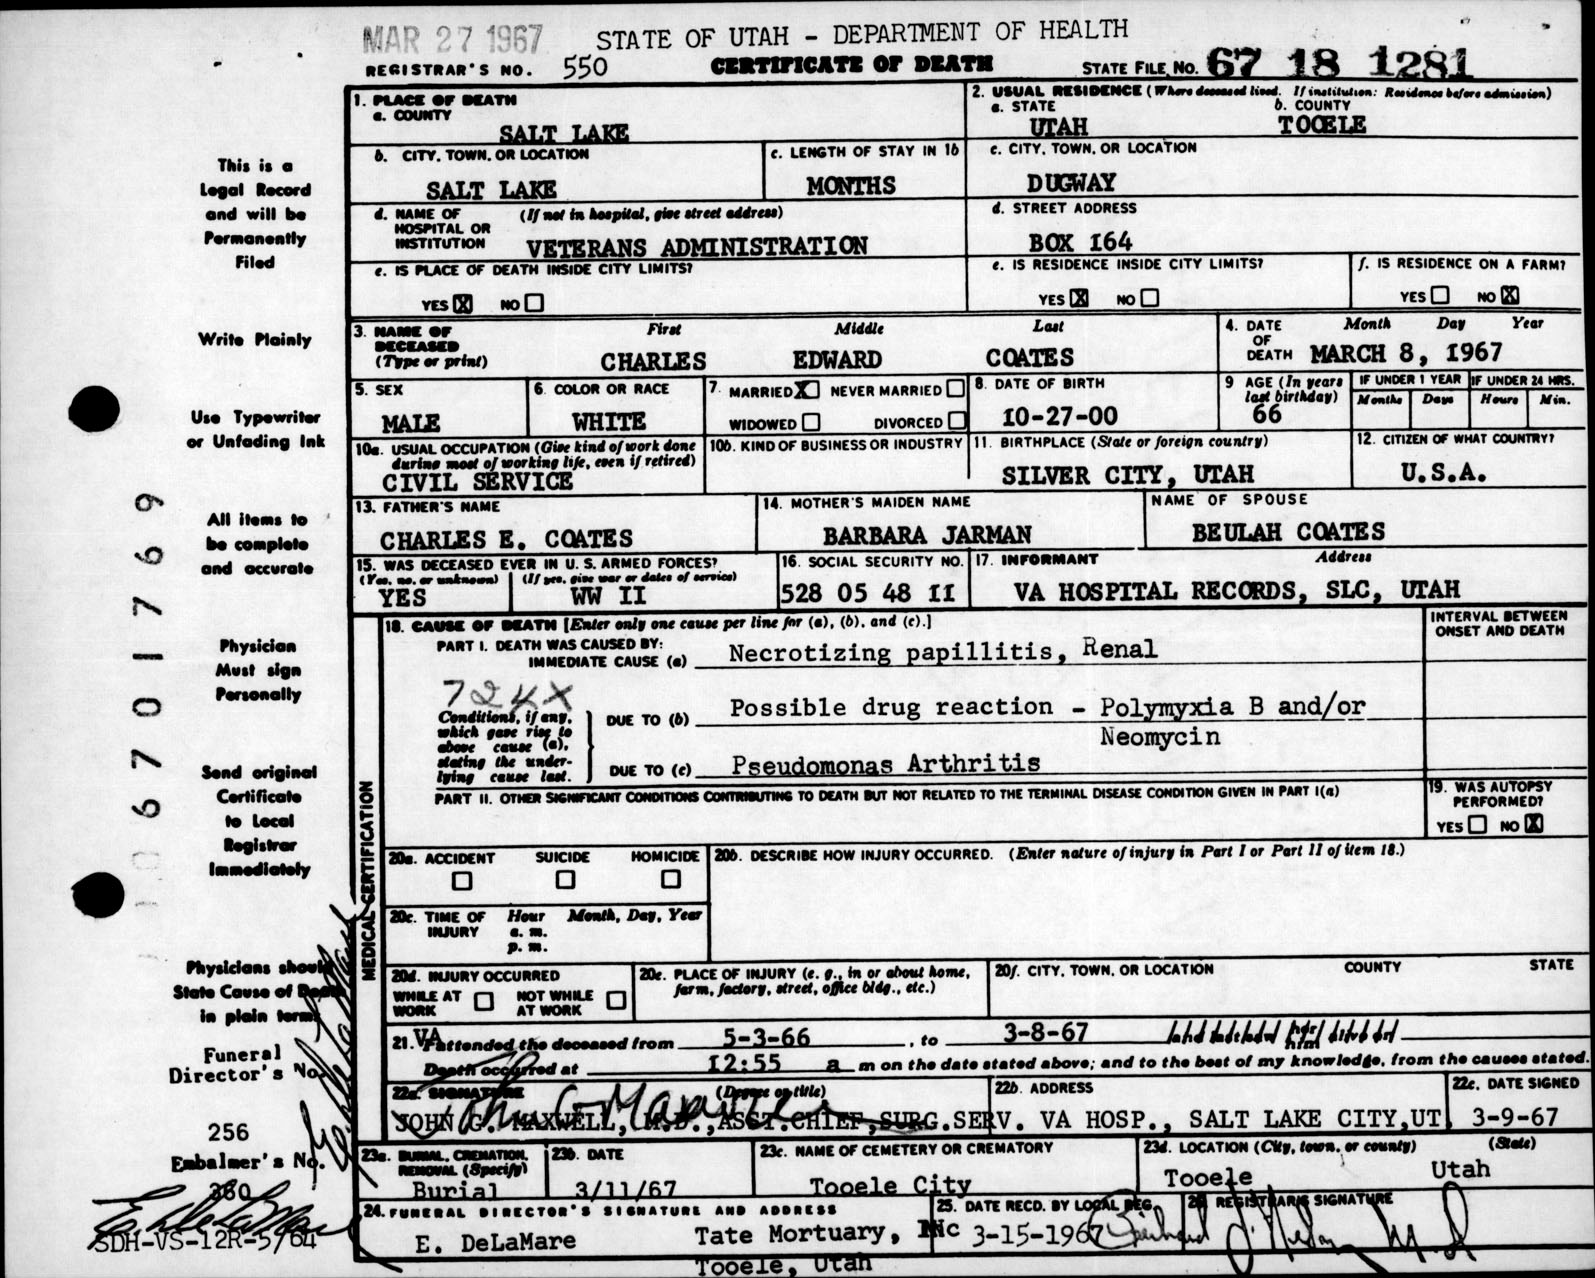 MAR 27 1967
STATE OF UTAH - DEPARTMENT OF HEALTH
REGISTRAR'S NO. 550
CERTIFICATE OF DEATH
STATE FILE NO. 67 18 1281
This is a
Legal Record
and will be
Permanently
Filed
Write Plainly
Use Typewriter
or Unfading Ink
All items to
be complete
and accurate
Physician
Must sign
Personally
Send original
Certificate
to Local
Registrar
Immediately
Physicians should
State Cause of Death
in plain terms
Funeral
Director's No.
256
Embalmer's No.
360
SDH-VS-12R-5/64
06701769
1. PLACE OF DEATH
a. COUNTY
SALT LAKE
2. USUAL RESIDENCE (Where deceased lived. If institution: Residence before admission)
a. STATE b. COUNTY
UTAH TOOELE
b. CITY, TOWN, OR LOCATION
SALT LAKE
c. LENGTH OF STAY IN 1b
MONTHS
c. CITY, TOWN, OR LOCATION
DUGWAY
d. NAME OF HOSPITAL OR INSTITUTION (If not in hospital, give street address)
VETERANS ADMINISTRATION
d. STREET ADDRESS
BOX 164
e. IS PLACE OF DEATH INSIDE CITY LIMITS?
YES X NO
e. IS RESIDENCE INSIDE CITY LIMITS?
YES X NO
f. IS RESIDENCE ON A FARM?
YES NO X
3. NAME OF DECEASED (Type or print)
First Middle Last
CHARLES EDWARD COATES
4. DATE OF DEATH
Month Day Year
MARCH 8, 1967
5. SEX
MALE
6. COLOR OR RACE
WHITE
7. MARRIED X NEVER MARRIED
WIDOWED DIVORCED
8. DATE OF BIRTH
10-27-00
9 AGE (In years last birthday)
66
IF UNDER 1 YEAR
Months Days
IF UNDER 24 HRS.
Hours Min.
10a. USUAL OCCUPATION (Give kind of work done during most of working life, even if retired)
CIVIL SERVICE
10b. KIND OF BUSINESS OR INDUSTRY
11. BIRTHPLACE (State or foreign country)
SILVER CITY, UTAH
12. CITIZEN OF WHAT COUNTRY?
U.S.A.
13. FATHER'S NAME
CHARLES E. COATES
14. MOTHER'S MAIDEN NAME
BARBARA JARMAN
NAME OF SPOUSE
BEULAH COATES
15. WAS DECEASED EVER IN U. S. ARMED FORCES?
(Yes, no, or unknown) (If yes, give war or dates of service)
YES WW II
16. SOCIAL SECURITY NO.
528 05 48 II
17. INFORMANT Address
VA HOSPITAL RECORDS, SLC, UTAH
MEDICAL CERTIFICATION
18. CAUSE OF DEATH [Enter only one cause per line for (a), (b), and (c).]
INTERVAL BETWEEN
ONSET AND DEATH
PART I. DEATH WAS CAUSED BY:
IMMEDIATE CAUSE (a) Necrotizing papillitis, Renal
724X
Conditions, if any, which gave rise to above cause (a), stating the underlying cause last.
DUE TO (b) Possible drug reaction - Polymyxia B and/or
Neomycin
DUE TO (c) Pseudomonas Arthritis
PART II. OTHER SIGNIFICANT CONDITIONS CONTRIBUTING TO DEATH BUT NOT RELATED TO THE TERMINAL DISEASE CONDITION GIVEN IN PART I(a)
19. WAS AUTOPSY PERFORMED?
YES NO X
20a. ACCIDENT SUICIDE HOMICIDE
20b. DESCRIBE HOW INJURY OCCURRED. (Enter nature of injury in Part I or Part II of item 18.)
20c. TIME OF INJURY Hour Month, Day, Year
a. m.
p. m.
20d. INJURY OCCURRED
WHILE AT WORK NOT WHILE AT WORK
20e. PLACE OF INJURY (e. g., in or about home, farm, factory, street, office bldg., etc.)
20f. CITY, TOWN, OR LOCATION COUNTY STATE
21. VA attended the deceased from 5-3-66, to 3-8-67
Death occurred at 12:55 a m on the date stated above; and to the best of my knowledge, from the causes stated.
22a. SIGNATURE (Degree or title)
JOHN G. MAXWELL, M.D., ASST.CHIEF,SURG.SERV.
22b. ADDRESS
VA HOSP., SALT LAKE CITY,UT
22c. DATE SIGNED
3-9-67
23a. BURIAL, CREMATION, REMOVAL (Specify)
Burial
23b. DATE
3/11/67
23c. NAME OF CEMETERY OR CREMATORY
Tooele City
23d. LOCATION (City, town, or county) (State)
Tooele Utah
24. FUNERAL DIRECTOR'S SIGNATURE AND ADDRESS
E. DeLaMare Tate Mortuary, Inc
Tooele, Utah
25. DATE RECD. BY LOCAL REG.
3-15-1967
26. REGISTRAR'S SIGNATURE